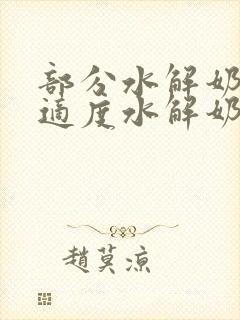 部分水解奶
适度水解奶
趙莫凉